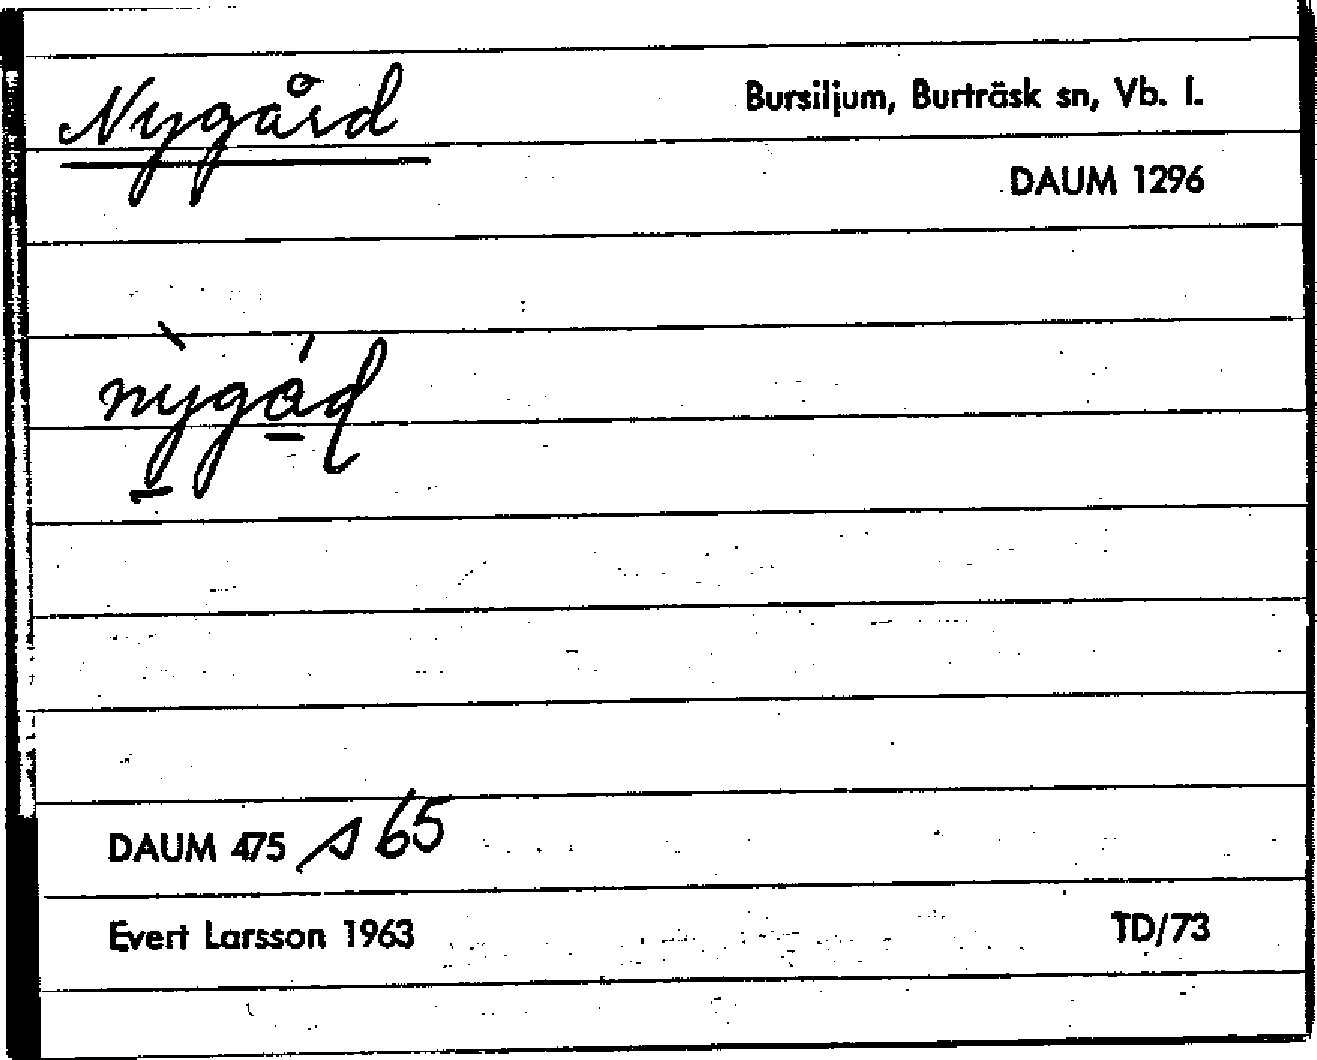 Nygård
Bursiljum, Burträsk sn, Vb. l.
DAUM 1296
DAUM 475 s 65
Evert Larsson 1963
TD/73